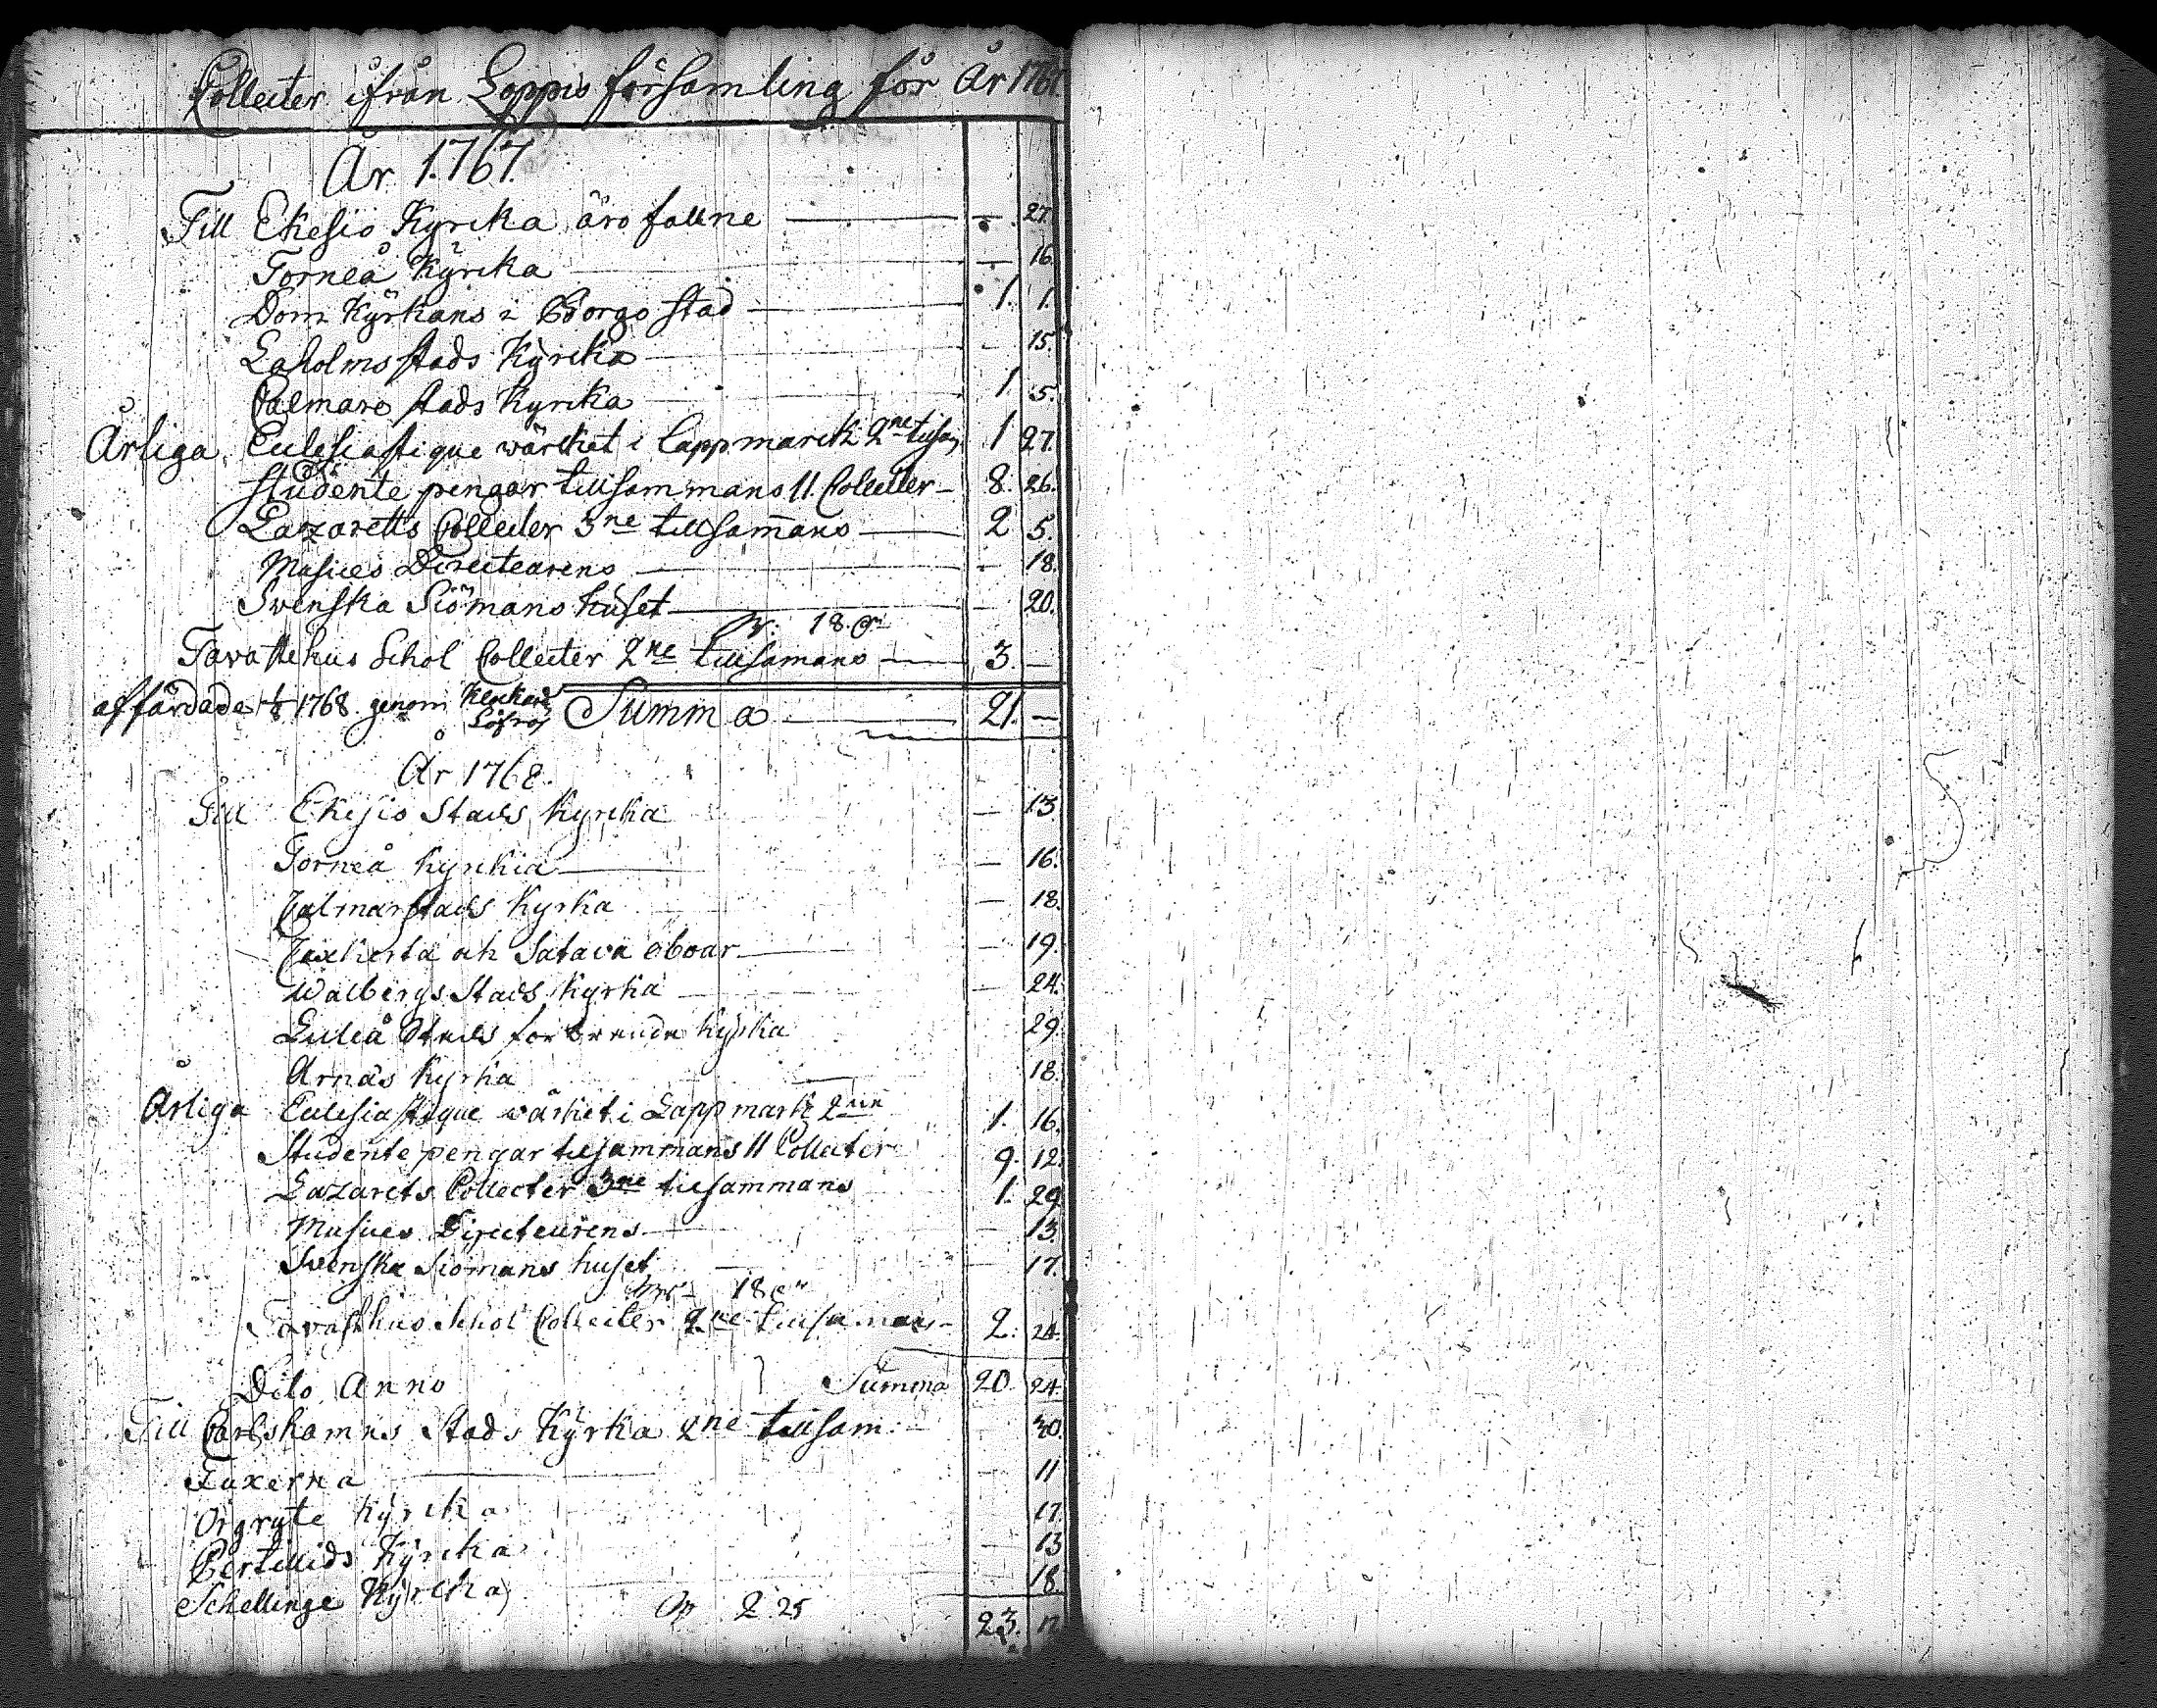 Collecter ifrån Loppis församling för År 1767.
År 1767.
Till Ekesiö Kyrcka äro fallne — — 27.
Torneå Kÿrcka — — 16.
Dom Kÿrkans i Borgo stad — 1. 1.
Laholms stads Kÿrcka — — 15.
Calmare stads Kyrcka 1. 5.
Årliga Ecclesiastique wärcket i Lappmarck 2ne 1 27.
Studente pengar tillsammans 11. Collecter — 8. 26.
Lazaretts Collecter 3ne tillsam̄ans — 2 5.
Musices Directeurens — — 18.
Swenska Siömans huset — — 20.
18.
Tavastehus Schol Collecter 2ne tillsamans — 3. —
affärdade 1768. genom Summa — 21. —
År 1768.
Till Ekesio Stads Kyrcka — 13
Torneå Kyrckia — — 16.
Calmar stads Kyrka — 18.
och Satava åboar — — 19.
Walbergs Stads Kyrka — — 24.
Luleå Stads Kyrka 29.
Arnäs Kyrka 18.
Årliga Ecclesiastique wärket i Lappmark 2ne 1. 16.
Studente pengar tilsammans 11 Collecter 9. 12.
Lazarets Collecter 3ne tilsammans 1. 29
Musices Directeurens — — 13.
Svenska Siömans huset — — 17.
18
Tavasthus Schol Collecter 2ne tillsamans — 2. 24.
Dito Anno Summa 20. 24.
Till Carlshamns Stads Kÿrka 2ne tillsam: — 30.
Tuxerna — — 11
Örgryte Kÿrcka 17.
Bertillids Kÿrcka — 13
Schellinge Kÿrcka — 18.
2 25 23.